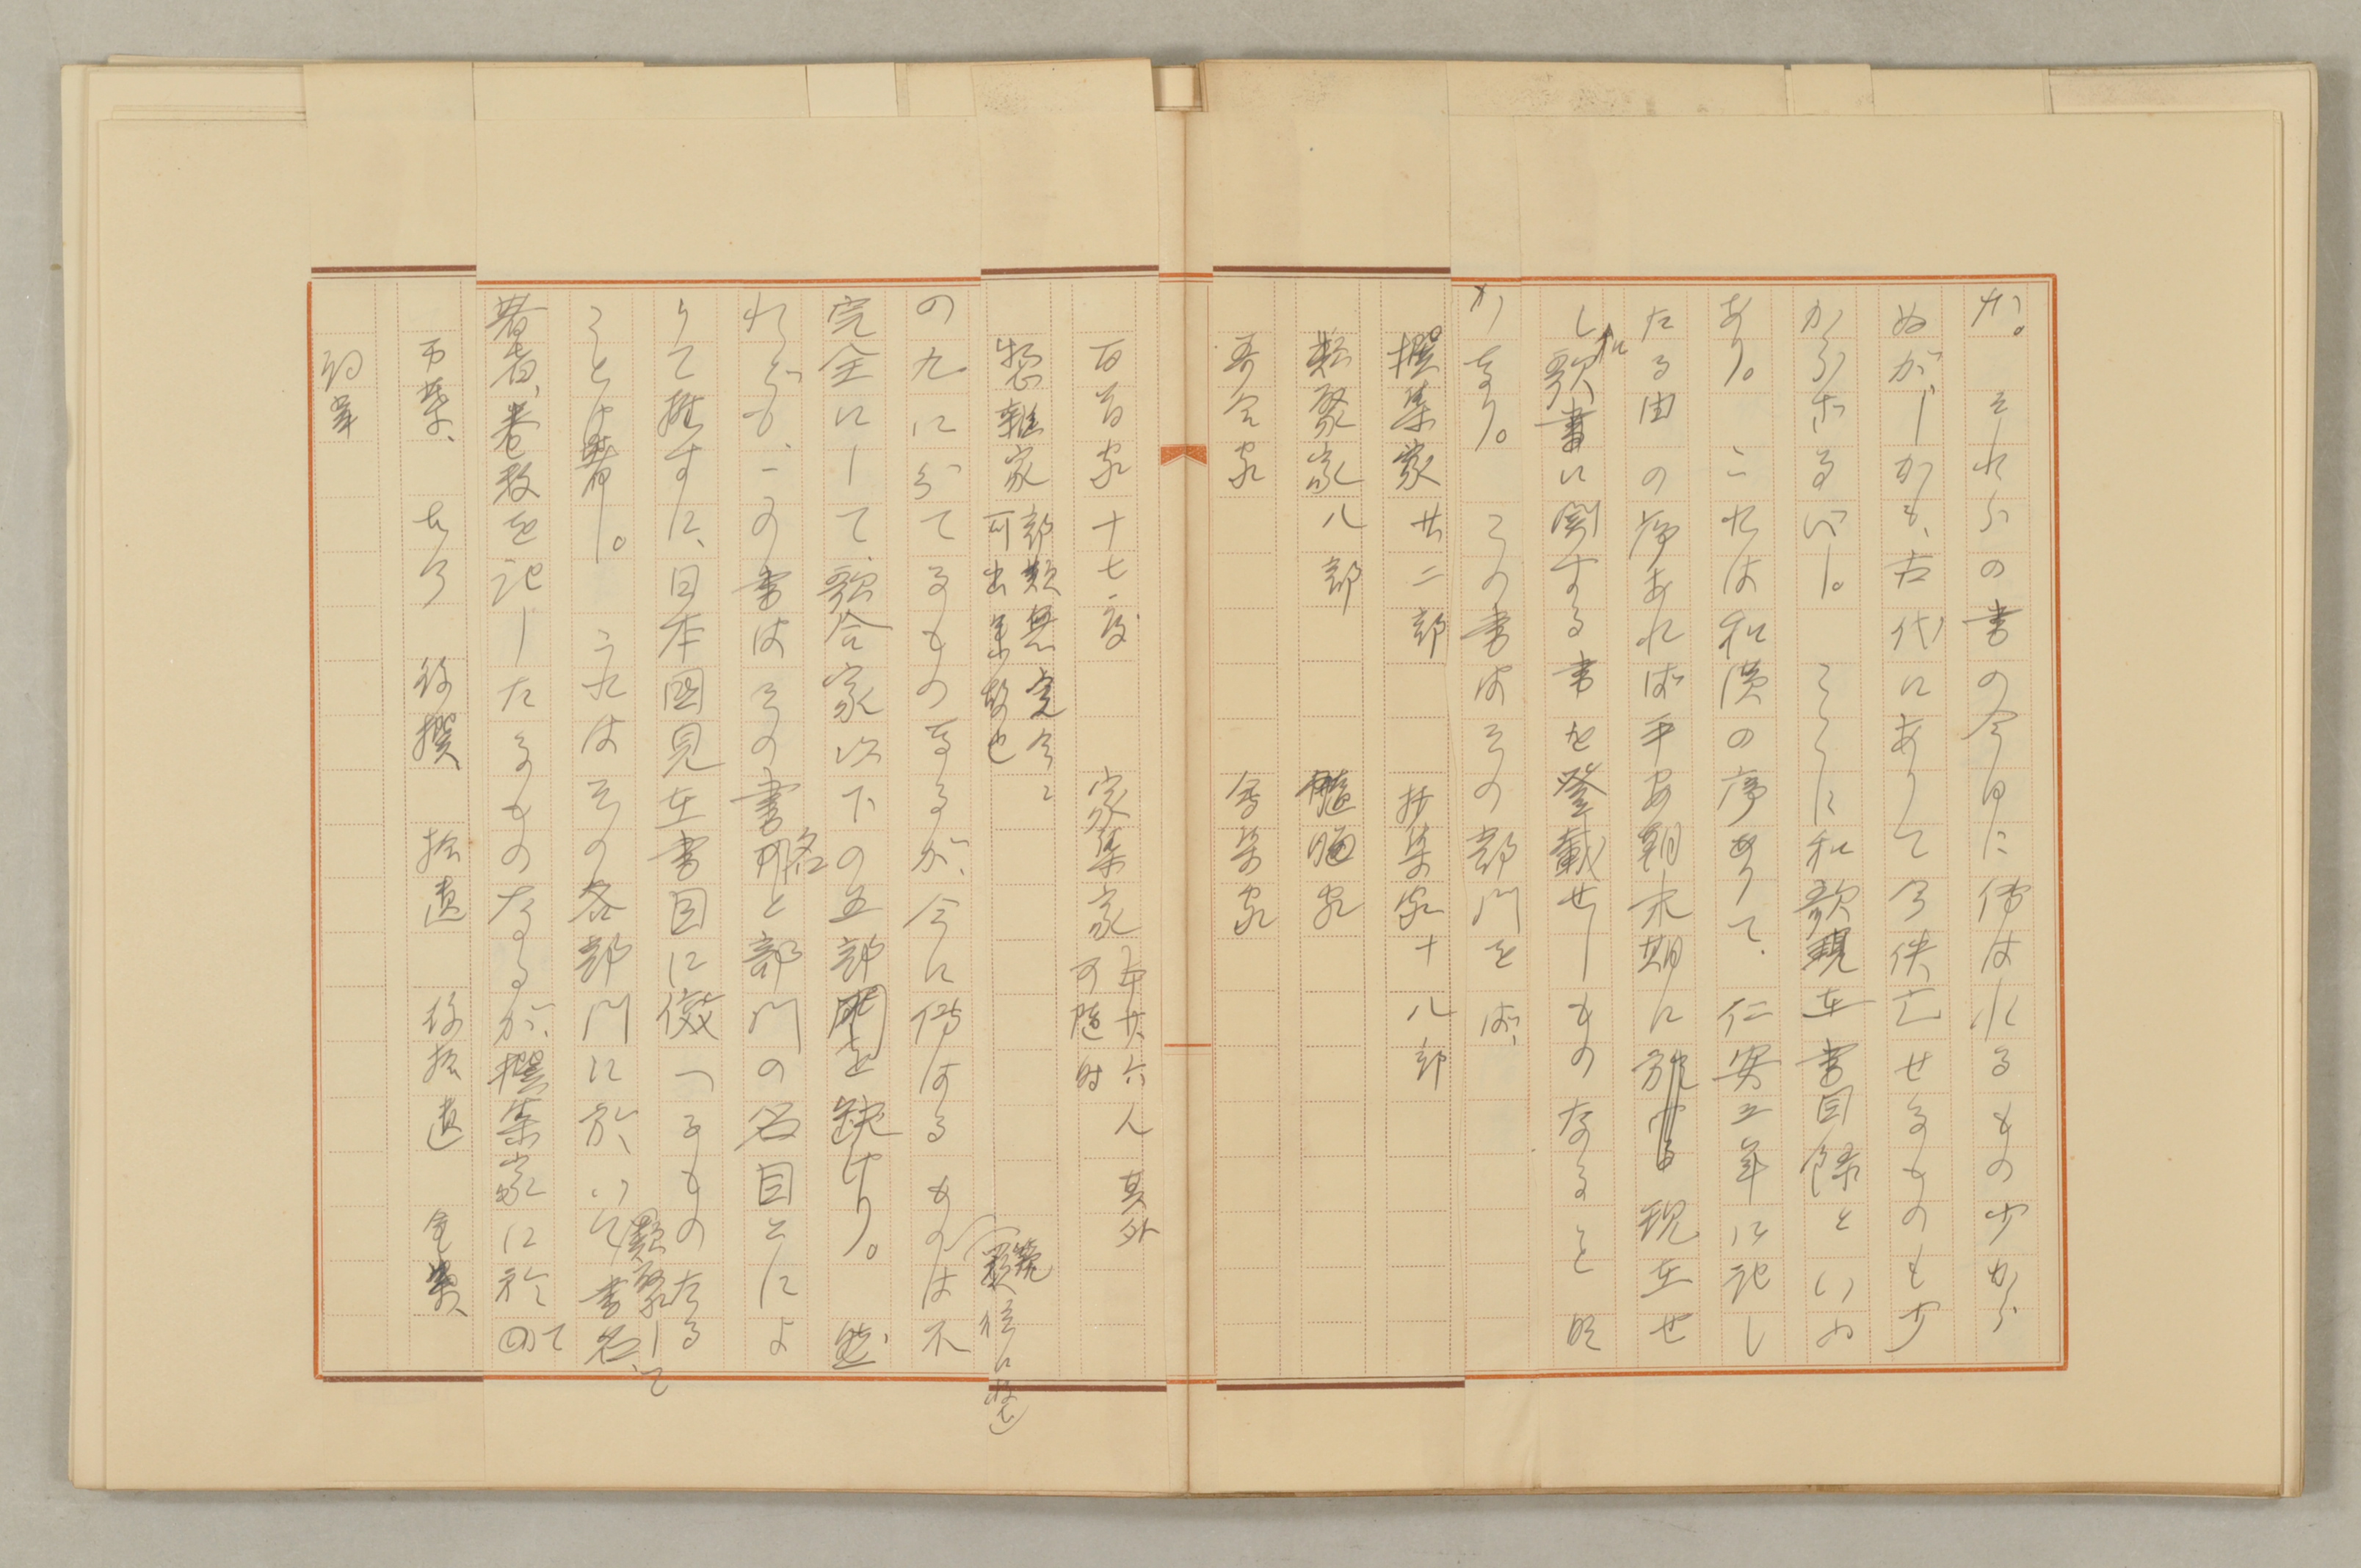 か。それらの書の今日に傳はれるもの少から
ぬが、しかも、古代にありて今佚亡せるものも少
からざるべし。こゝに和歌現在書目録といふ
あり。これは和漢の序ありて、仁安五年に記し
たる由の序あれば平安朝末期に現在せ
し和歌書に関する書を登載せしものなること明
かなり。この書はその部門を
撰集家 廿二部 抄集家 十八部
類聚家 八部 髄脳家
哥合家 会集家
百首家 十七度 家集家 廿六人 其外 可随時
惣雑家 部類無 可出来故也
の九に分てるものなるが、今に傳はるものは不
完全にして、歌合家以下の五部を缺けり。然
れども、この書はその書名と部門の名目とによ
りて推すに、日本國見在書目に倣へるものなる
ことは著し。これはその各部門に於いて書名、
著者、巻数を記したるものなるが、撰集家に於て
万葉、古今 後撰 拾遺 後拾遺 金葉、
詞華